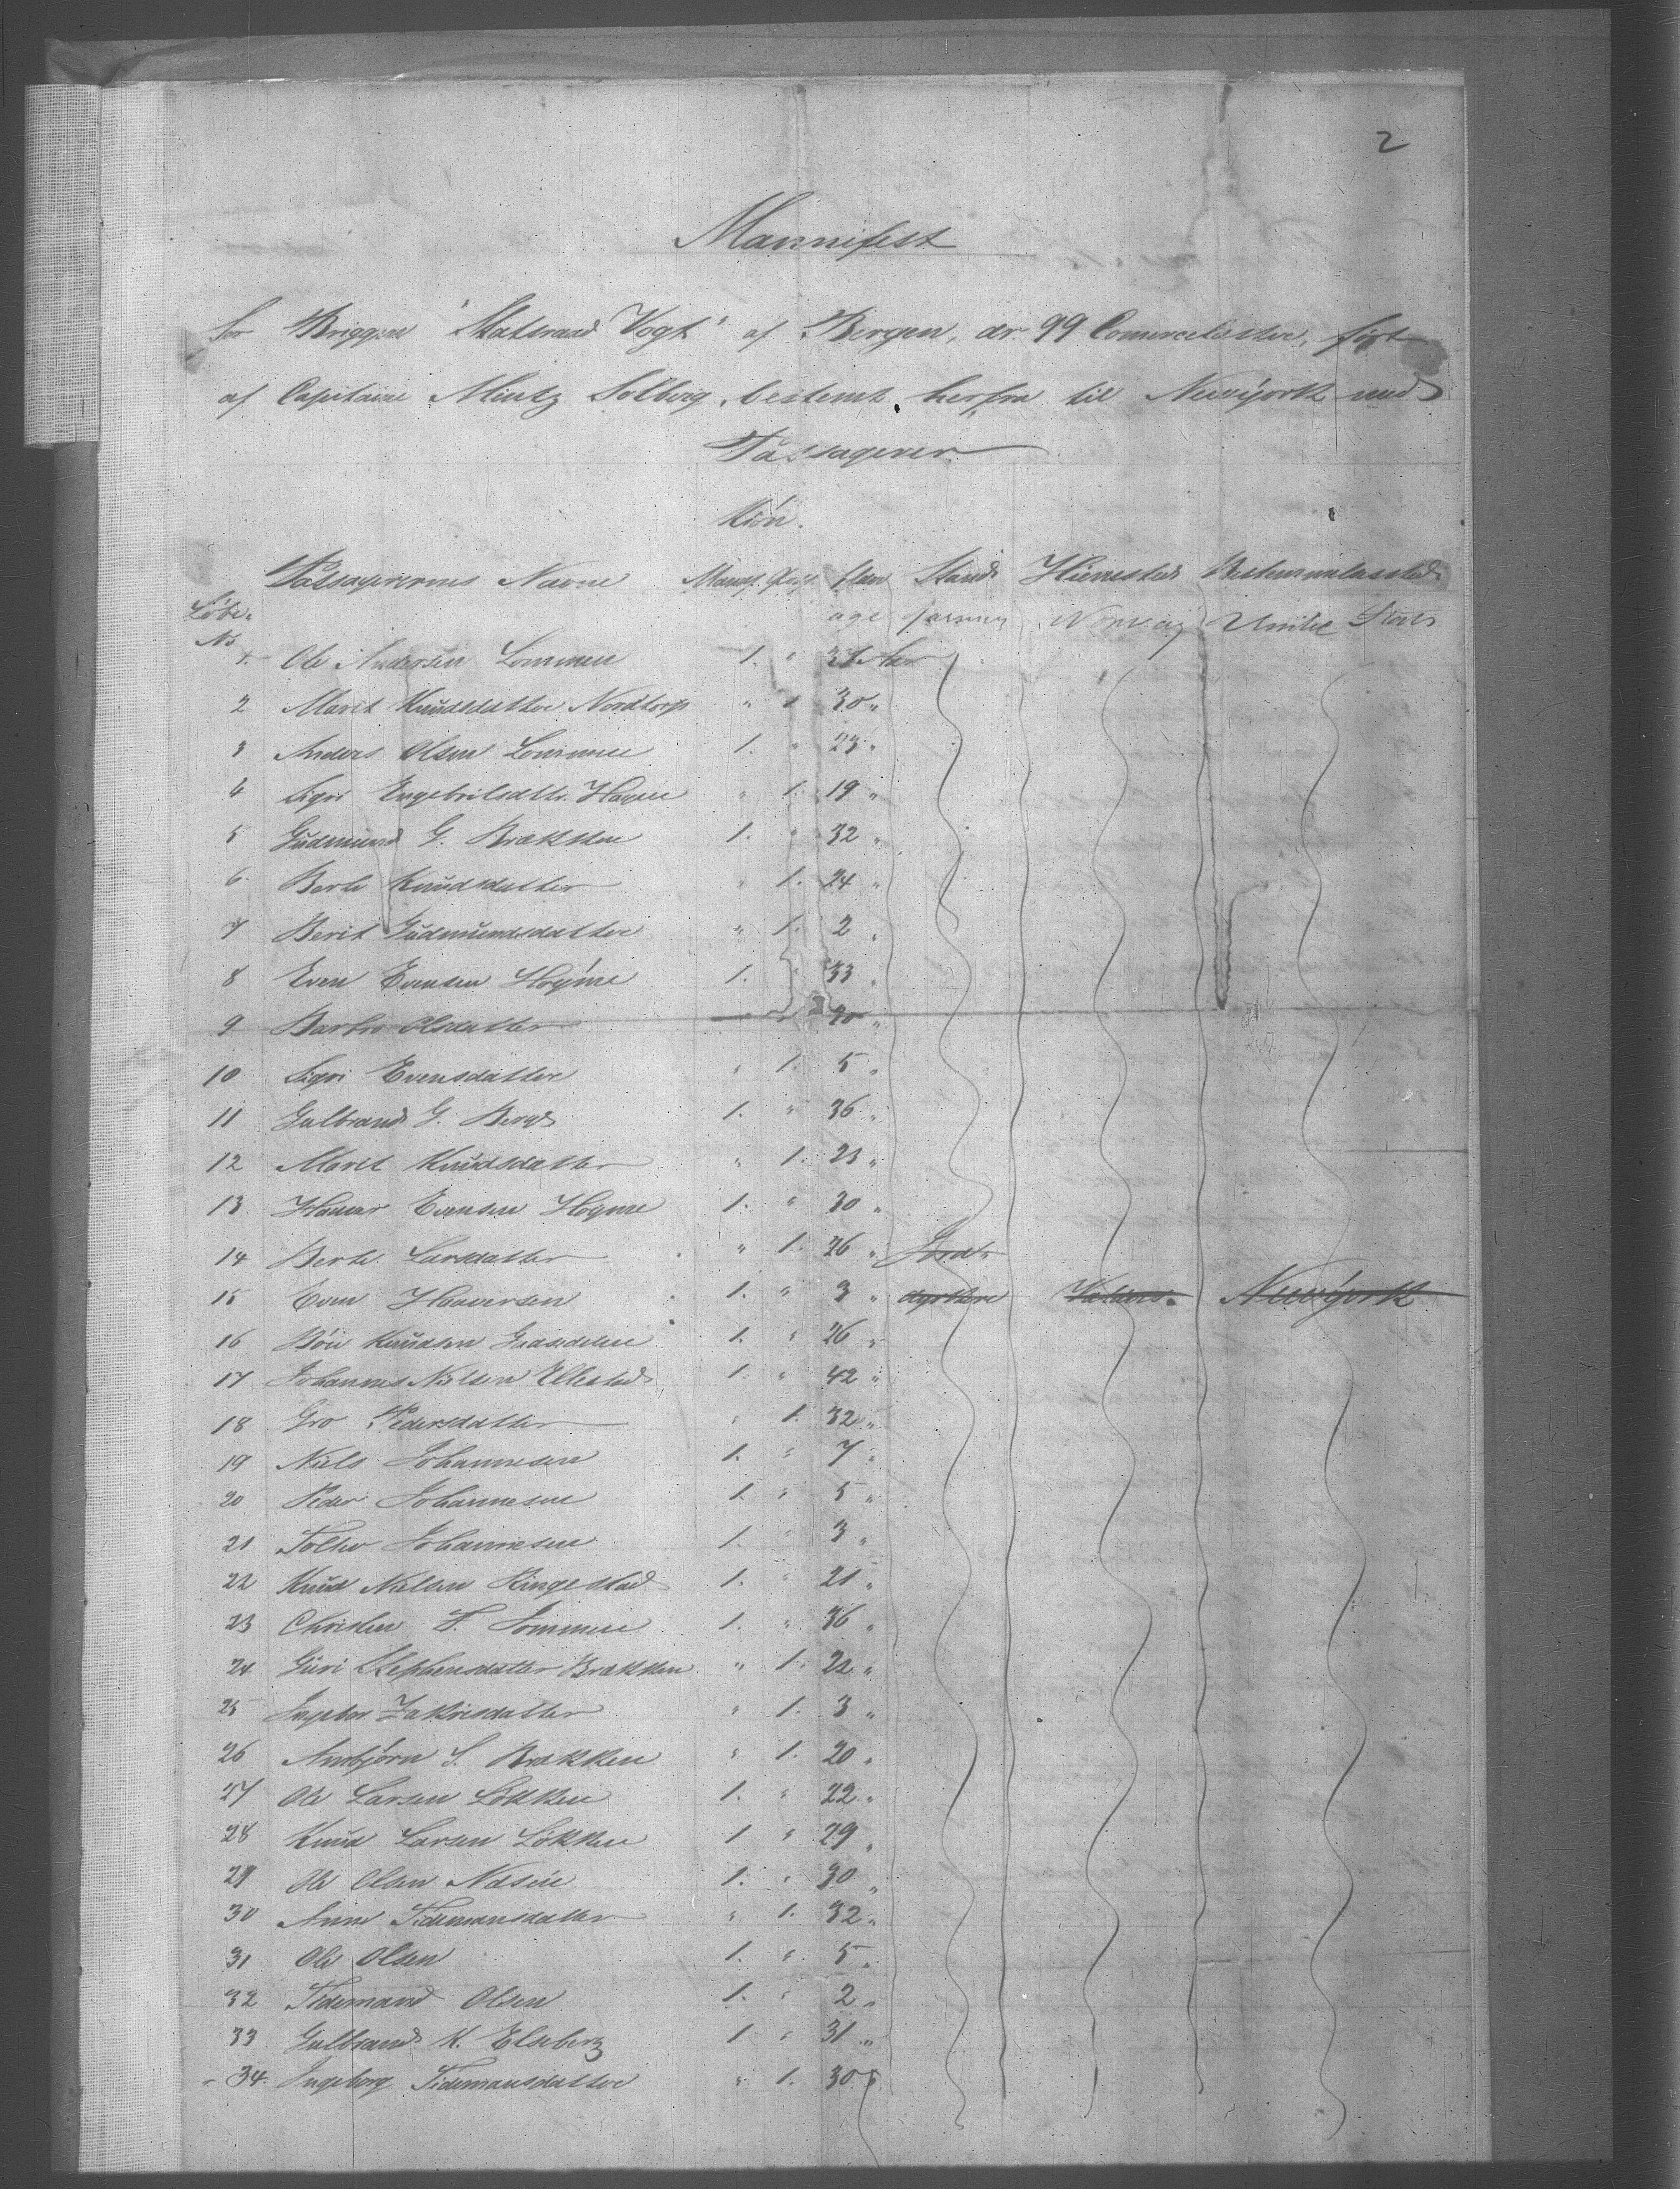 2
Mannifest
for Briggen "Statsraad Vogt" af Bergen, dr. 99 Comercelæster, ført
af Capitaine Mintz Solberg, bestemt herfra til Newÿork med
Passagerer
Kiön.
Passagerernes Navne Mandf. Qvf. Alder Stand Hiemsted Bestemmelsessted
Löbe- age farmer Norway United States
No
1. Ole Andersen Lommen 1. " 37 Aar
2 Marit Knudsdatter Nordtorp " 1 30 "
3 Anders Olsen Lommen 1. " 23 "
4 Sigri Engebritsdtr. Hagen " 1. 19 "
5 Gudmund G. Brækken 1. " 32 "
6. Berte Knudsdatter " 1. 24 "
7 Berit Gudmundsdatter " 1. 2 "
8 Even Evensen Höÿme 1. 33 "
9 Barbro Olsdatter 30 "
10 Sigri Evensdatter " 1. 5 "
11 Gulbrand G. Berg 1. " 36 "
12 Marit Knudsdatter " 1. 23 "
13 Haavar Evensen Höyme 1. " 30 "
14 Berte Larsdatter " 1. 26 " Jord-
15 Even Haaversen 1. " 3 " dyrkere Valders. Newÿork
16 Böie Knudsen 1. " 26 "
17 Johannes Nielsen Ellestad 1. " 42 "
18 Gro Pedersdatter " 1. 32 "
19 Niels Johannesen 1. " 7 "
20 Peder Johannesen 1. " 5 "
21 Johannesen 1. " 3 "
22 Knud Nielsen Ringestad 1. " 21 "
23 Christen T. Lommen 1. " 36 "
24 Guri Stephensdatter Brækken " 1. 22 "
25 Ingebor Zakrisdatter " 1. 3 "
26 Arnbjörn S. Brækken " 1. 20 "
27 Ole Larsen Lökken 1. " 22 "
28 Knud Larsen Lökken 1 " 29 "
29 Ole Olsen 1. " 30 "
30 Anne Tidemansdatter " 1. 32 "
31 Ole Olsen 1. " 5 "
32 Tidemand Olsen 1. " 2 "
33 Gulbrand K. Elseberg 1 " 31 "
34. Ingeborg Tidemansdatter " 1. 30 "